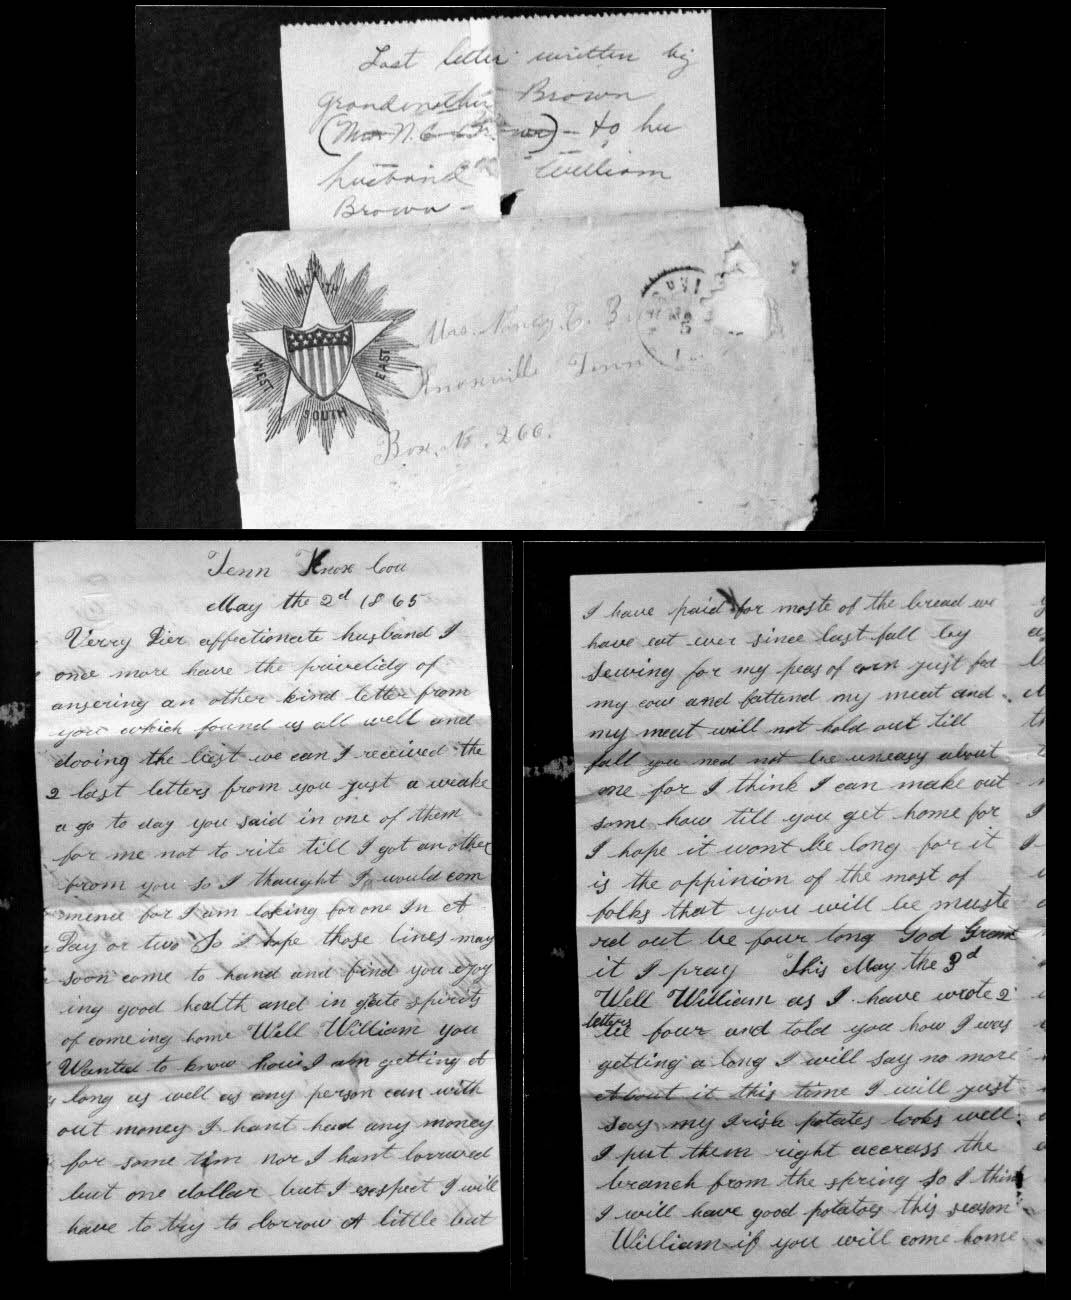 Last letter written by
grandmother Brown
(Mrs. N. C. Brown) - to her
husband William
Brown -
NORTH
WEST
EAST
SOUTH
Mrs. Nancy C.
Knoxville Tenn
Box. No. 266.
5
Tenn Knox Cou
May the 2d 1865
Verry Dier affectionate husband I
one more have the privelidg of
ansering an other kind letter from
you which found us all well and
dooing the best we can I received the
2 last letters from you just a weake
a go to day you said in one of them
for me not to rite till I got an other
from you so I thought I would com
mence for I am loking for one In A
Day or two So I hope those lines may
soon come to hand and find you ejoy
ing good health and in grate spirits
of comeing home Well William you
Wanted to know how I am getting A
long as well as any person can with
out money I hant had any money
for some tim nor I hant borrowed
but one dollar but I exspect I will
have to try to borrow A little but
I have paid for moste of the bread we
have eat ever since last fall by
sewing for my peas of corn just fed
my cow and fattend my meat and
my meat will not hold out till
fall you ned not be uneasy about
me for I think I can make out
some how till you get home for
I hope it wont be long for it
is the oppinion of the most of
folks that you will be muste
rd out be four long God Grant
it I pray This May the 3d
Well William as I have wrote 2
letters
be four and told you how I was
getting a long I will say no more
About it this time I will just
say my Irish potatoes looks well
I put them right accrass the
branch from the spring So I think
I will have good potatoes this season
William if you will come home